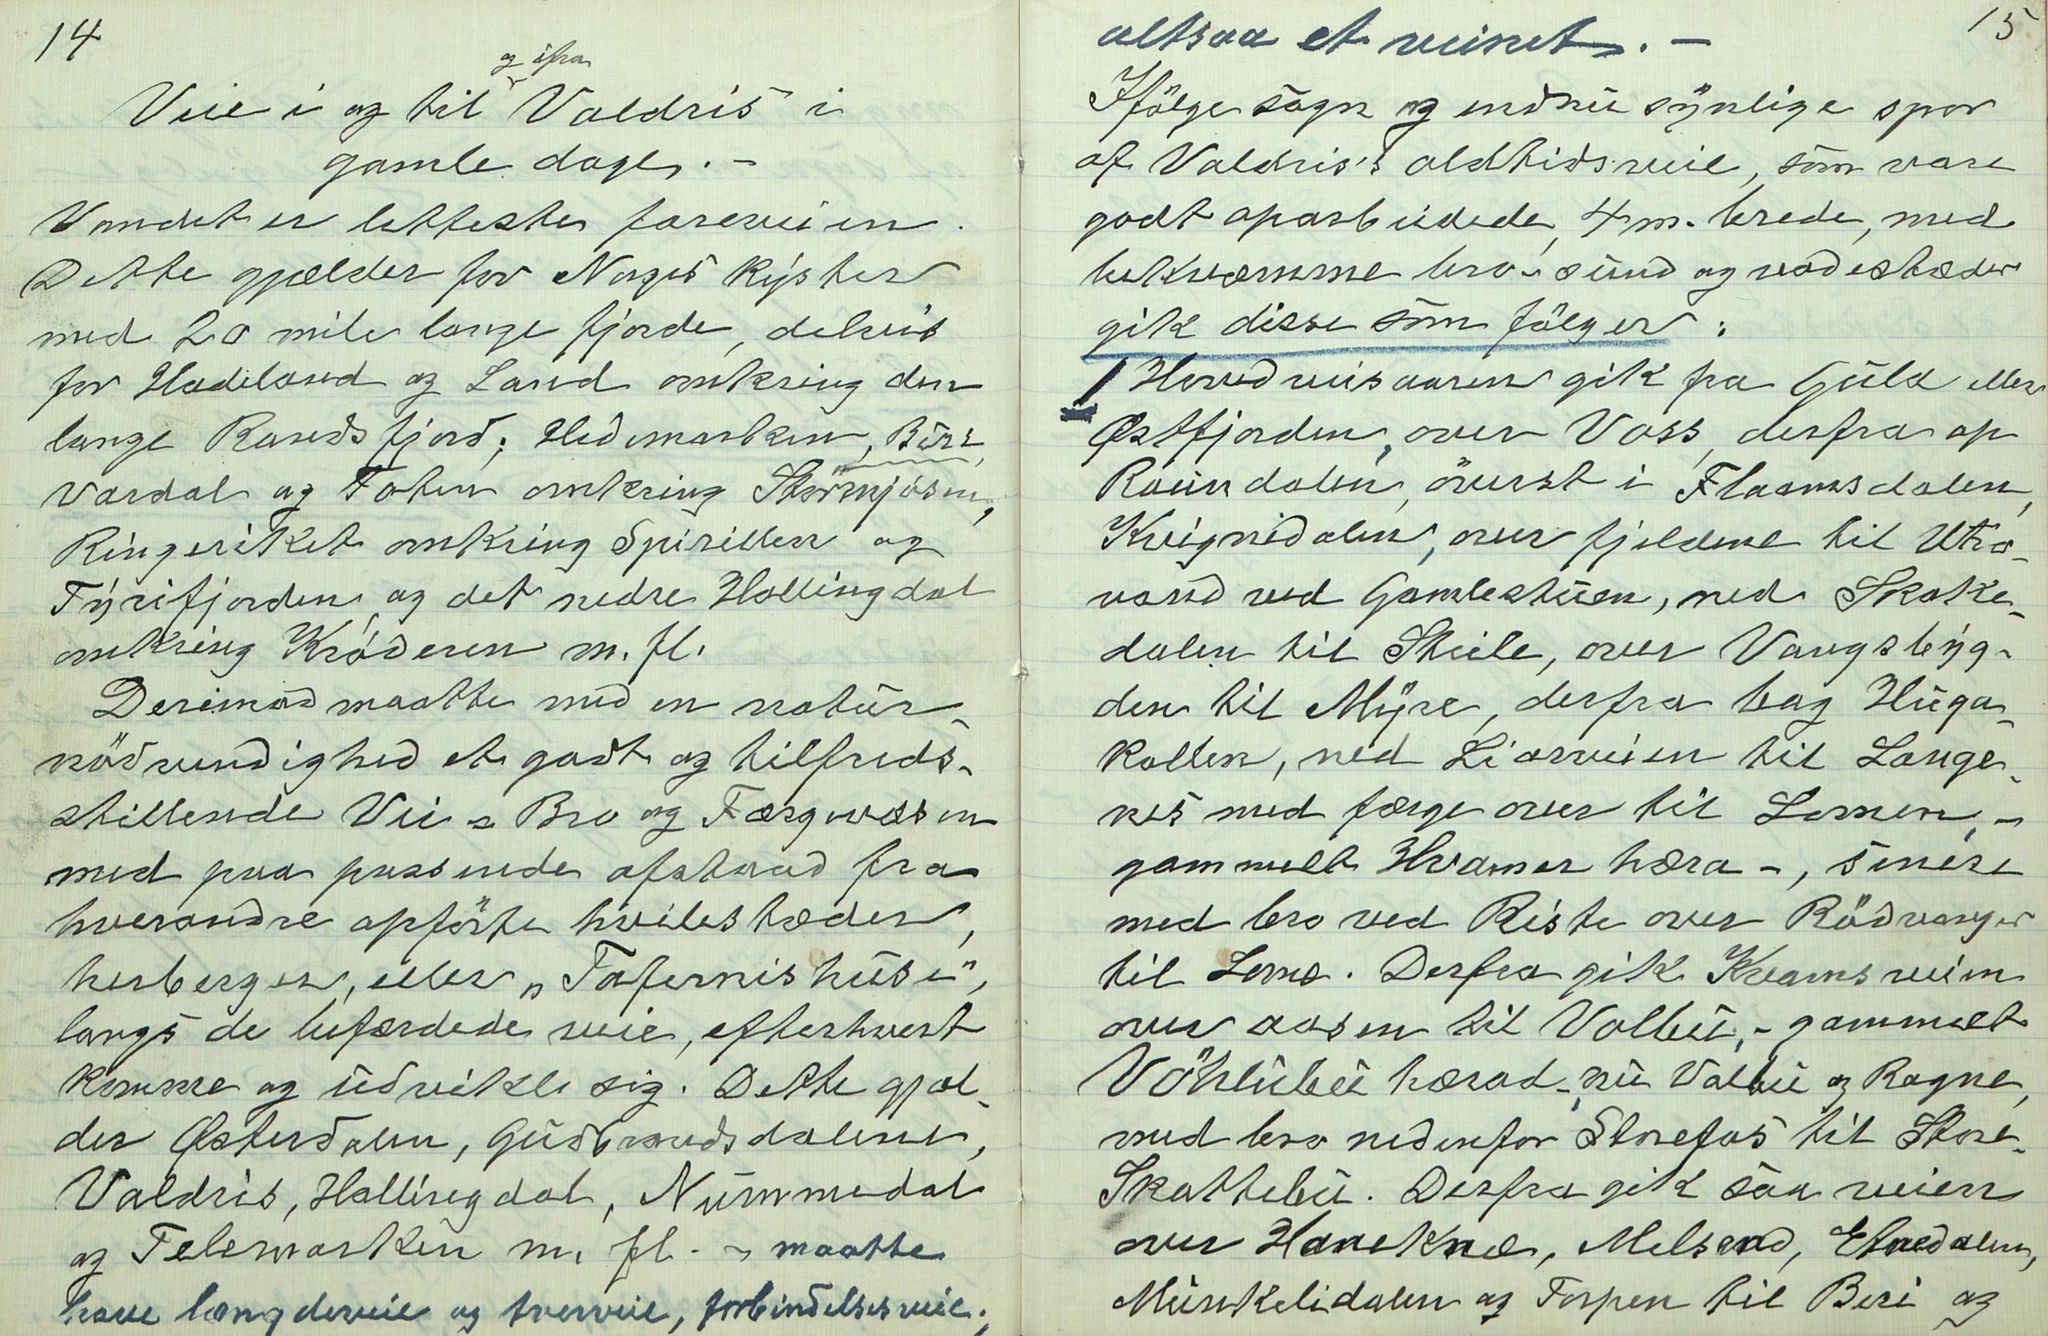 14
og ifra
Veie i og til Valdris i
gamle dage. -
Vandet er letteste fareveien.
Dette gjælder for Norges Kyster
med 20 mile lange fjorde, delvis
for Hadeland og Land omkring den
lange Randsfjord; Hedemarken, Biri,
Vardal og Toten omkring Stormjösen,
Ringeriket omkring Spirillen og
Tyrifjorden og det nedre Hallingdal
omkring Kröderen m. fl.
Derimod maatte med en natur-
nödvendighed et godt og tilfreds-
stillende Vei- Bro og Færgevæsen
med paa passende afstand fra
hverandre opförte hvilestæder,
herberger, eller „Tafernishuse",
langs de befærdede veie, efterhvert
komme og udvikle sig. Dette gjæl-
der Østerdalen, Gudbrandsdalene,
Valdris, Hallingdal, Nummedal
og Telemarken m. fl. - maatte
have længdeveie og tverveie, forbindelsesveie;
15
altsaa et veinet. -
Ifölge sagn og endnu synlige spor
af Valdris's oldtidsveie, som vare
godt oparbeidede, 4 m. brede, med
bekvæmme bro- sund og vadestæder
gik disse som fölger:
1 Hovedveisaaren gik fra Gula eller
Østfjorden, over Voss, derfra op
Raundalen, överst i Flaamsdalen,
Kvignedalen, over fjeldene til Utra-
vand ved Gamlestuen, ned Skake-
dalen til Steile, over Vangsbyg-
den til Myre, derfra bag Huga-
kollen, ned Liarveien til Lange-
nes med færge over til Lomen, -
gammelt Hvamer hæra -, senere
med bro ved Riste over Rödvanger
til Lome. Derfra gik Kvamsveien
over aasen til Volbu, - gammelt
Vöhlubu hærad -, nu Valbu og Rogne,
med bro nedenfor Storefos til Store-
Skattebu. Derfra gik saa veien
over Haneknæ, Melsend, Etnedalen,
Munkelidalen og Torpen til Beri og